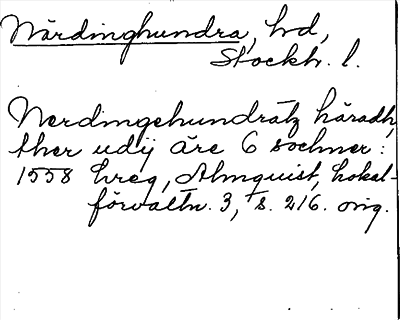 Närdinghundra, hd,
Stockh. l.
Nerdingehundratz häradh,
ther udij äre 6 sochner:
1558 hreg, Almquist, Lokal-
förvaltn. 3, s. 216. orig.